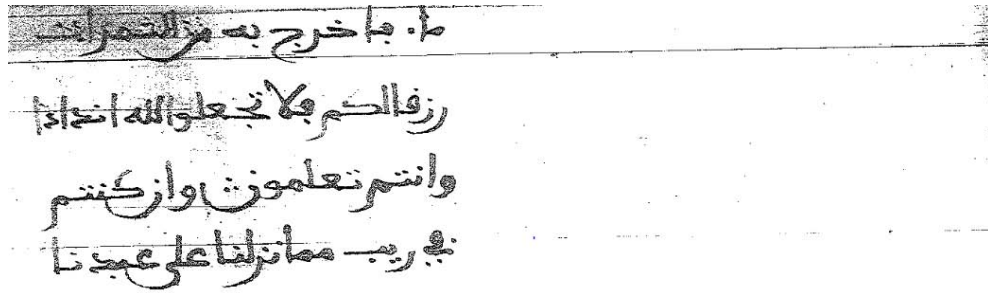 ما. فاخرج به من الثمرات
رزقا لكم فلا تجعلوا لله اندادا
وانتم تعلمون وان كنتم
في ريب مما نزلنا على عبدنا